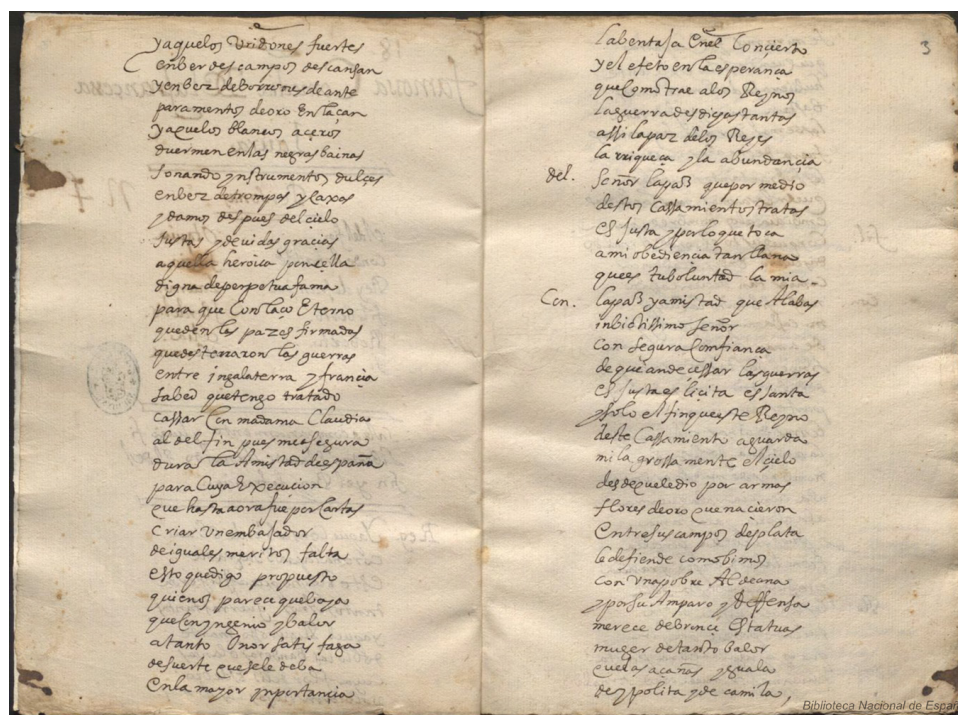 yaquelos bridones fuertes
en berdes campos descansan
y en bez de borrenes de ante
paramentos de oro enlaçan
y aquelos blancos açeros
duermen en las negras bainas
sonando ynstrumentos dulçes
en bez de trompas y caxas
y damos despues del cielo
justas y devidas graçias
aquella heroica ponçella
digna de perpetua fama
para que con laço eterno
queden las pazes firmadas
que desterraron las guerras
entre ingalaterra y françia
sabed que tengo tratado
cassar con madama Claudia
al delfin pues me asegura
dura la Amistad de españa
para cuya execucion
que hasta aora fue por cartas
criar un embajador
de iguales meritos falta
esto que digo propuesto
quien os pareçe que baya
que con yngenio y balor
a tanto onor satisfaga
de suerte que se le deba
en la mayor ynportançia
la bentaja en el conçierto
y el efeto en la esperança
que como trae a los Reynos
la guerra desdichas tantas
assi la paz de los Reyes
la rriqueça y la abundançia
del. señor la paz que por medio
destos cassamientos tratas
es justa y por lo que toca
a mi obediençia tan llana
que es tu boluntad la mia
Con. la paz y amistad que Alabas
inbictissimo señor
con segura confiança
de que an de cessar las guerras
es justa es licita es santa
y solo el fin que este Reyno
deste cassamiento aguarda
milagrossamente el çielo
desde que le dio por armas
flores de oro que naçieron
entre sus campos de plata
le defiende como bimos
con una pobre Aldeana
y por su Amparo y Deffensa
mereçe de bronçe estatuas
muger de tanto balor
que las açañas yguala
de ypolita y de camila,
3
Biblioteca Nacional de España